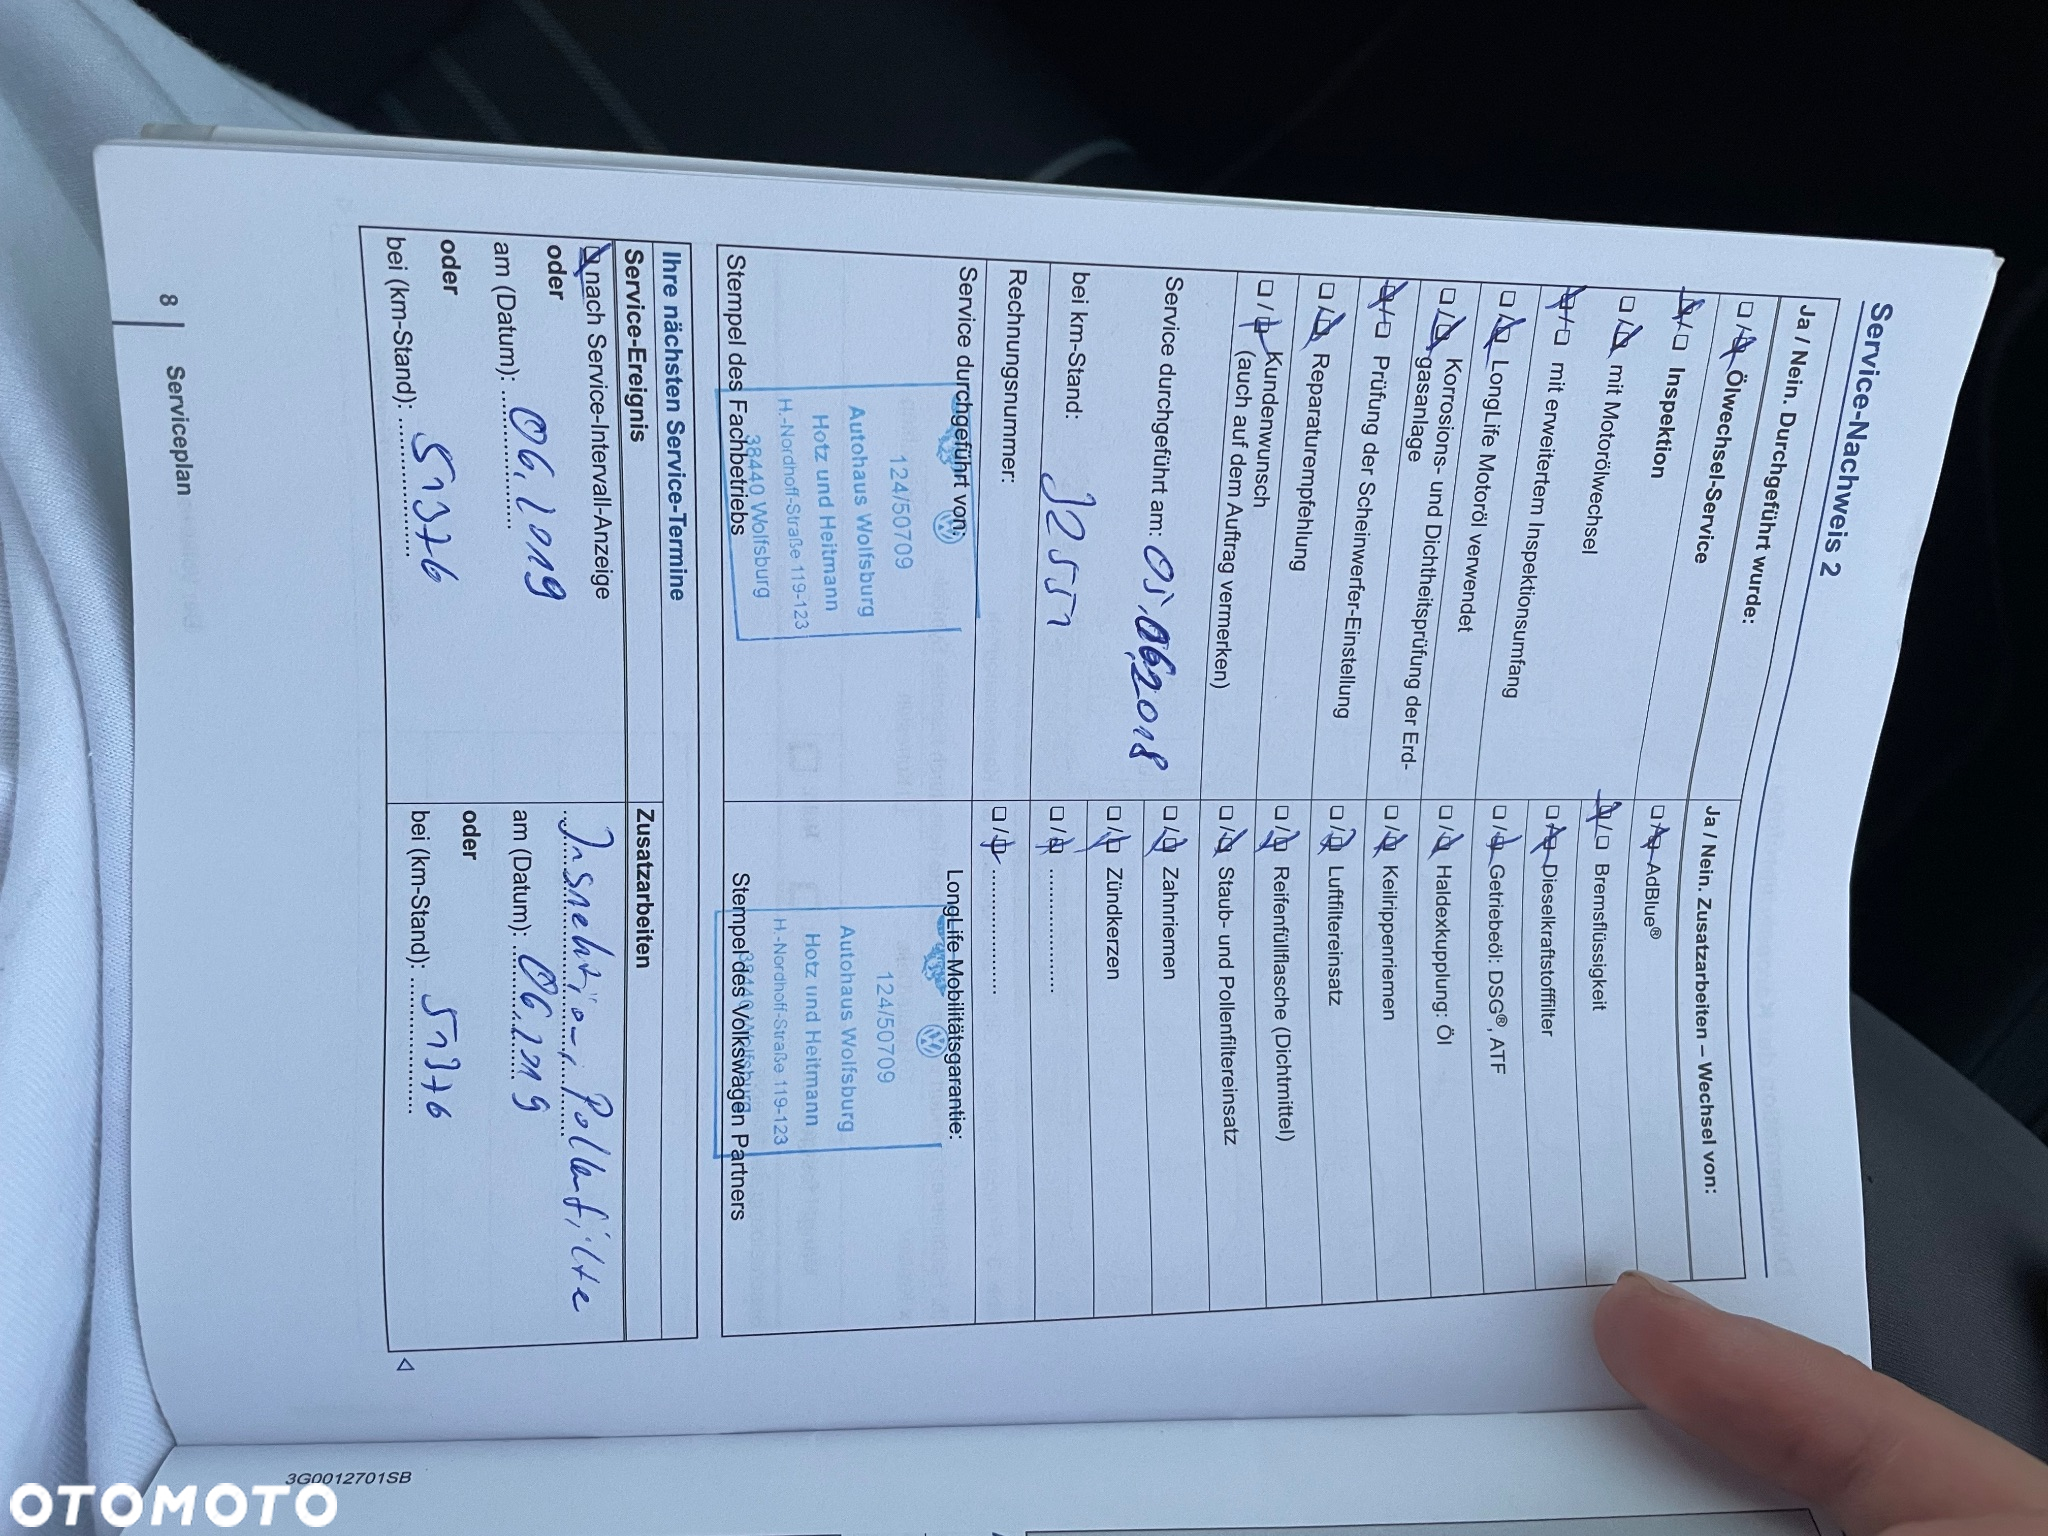 Service-Nachweis 2
Ja / Nein. Durchgeführt wurde:
Ölwechsel-Service
Inspektion
mit Motorölwechsel
mit erweitertem Inspektionsumfang
LongLife Motoröl verwendet
Korrosions- und Dichtheitsprüfung der Erd-
gasanlage
Prüfung der Scheinwerfer-Einstellung
Reparaturempfehlung
Kundenwunsch
(auch auf dem Auftrag vermerken)
Service durchgeführt am: 05.06.2018
bei km-Stand:
Rechnungsnummer:
Service durchgeführt von:
124/50709
Autohaus Wolfsburg
Hotz und Heitmann
H.-Nordhoff-Straße 119-123
38440 Wolfsburg
Stempel des Fachbetriebs
Ja / Nein. Zusatzarbeiten – Wechsel von:
AdBlue®
Bremsflüssigkeit
Dieselkraftstofffilter
Getriebeöl: DSG®, ATF
Haldexkupplung: Öl
Keilrippenriemen
Luftfiltereinsatz
Reifenfüllflasche (Dichtmittel)
Staub- und Pollenfiltereinsatz
Zahnriemen
Zündkerzen
LongLife Mobilitätsgarantie:
124/50709
Autohaus Wolfsburg
Hotz und Heitmann
H.-Nordhoff-Straße 119-123
38440 Wolfsburg
Stempel des Volkswagen Partners
Ihre nächsten Service-Termine
Service-Ereignis
nach Service-Intervall-Anzeige
oder
am (Datum): 06.2019
oder
bei (km-Stand): 51376
Zusatzarbeiten
Inspektion, Pollenfilte
am (Datum): 06.2019
oder
bei (km-Stand): 51376
8 Serviceplan
3G0012701SB
OTOMOTO